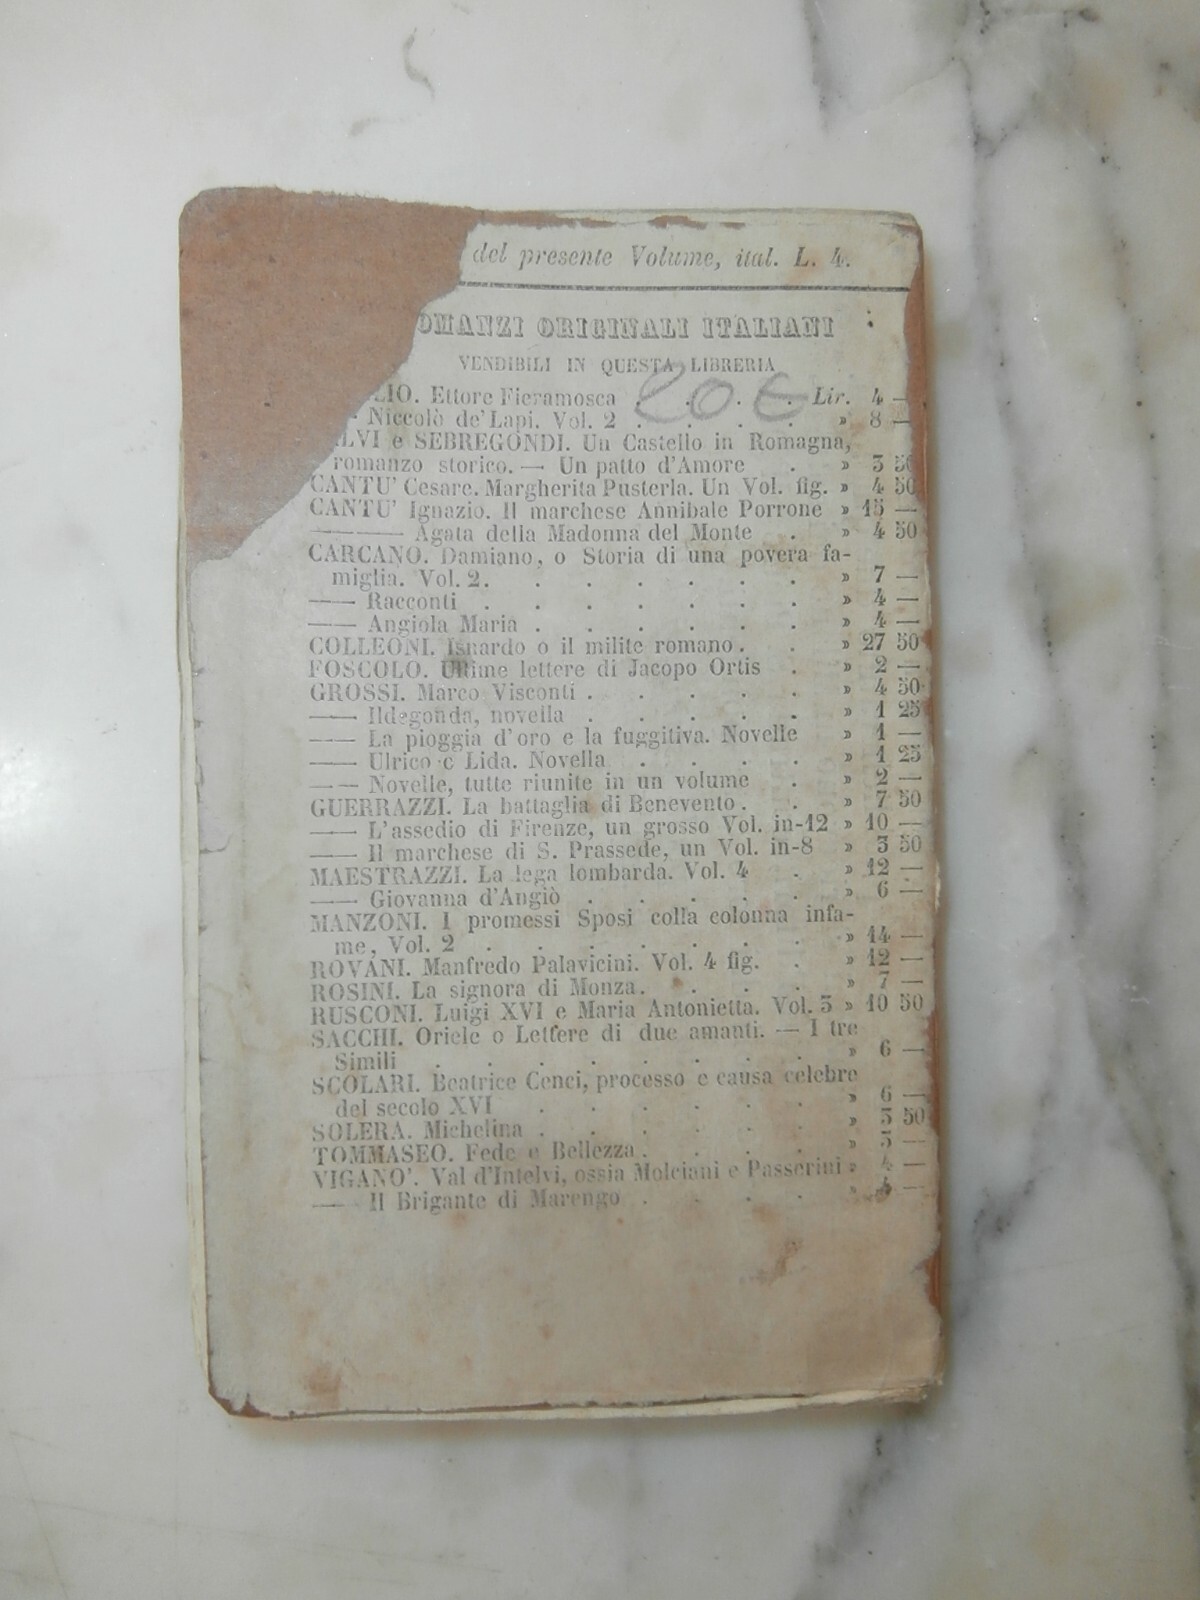 del presente Volume, ital. L. 4.
OMANZI ORIGINALI ITALIANI
VENDIBILI IN QUESTA LIBRERIA
20 €
LIO. Ettore Fieramosca . . . . Lir. 4 —
— Niccolò de' Lapi. Vol. 2 . . . . » 8 —
LVI e SEBREGONDI. Un Castello in Romagna,
romanzo storico. — Un patto d'Amore . » 3 50
CANTU' Cesare. Margherita Pusterla. Un Vol. fig. » 4 50
CANTU' Ignazio. Il marchese Annibale Porrone » 15 —
—— Agata della Madonna del Monte . » 4 50
CARCANO. Damiano, o Storia di una povera fa-
miglia. Vol. 2. . . . . . . . » 7 —
—— Racconti . . . . . . . » 4 —
—— Angiola Maria . . . . . . » 4 —
COLLEONI. Isnardo o il milite romano . . » 27 50
FOSCOLO. Ultime lettere di Jacopo Ortis . » 2 —
GROSSI. Marco Visconti . . . . . » 4 50
—— Ildegonda, novella . . . . . » 1 25
—— La pioggia d'oro e la fuggitiva. Novelle » 1 —
—— Ulrico e Lida. Novella . . . . » 1 25
—— Novelle, tutte riunite in un volume . » 2 —
GUERRAZZI. La battaglia di Benevento . . » 7 50
—— L'assedio di Firenze, un grosso Vol. in-12 » 10 —
—— Il marchese di S. Prassede, un Vol. in-8 » 3 50
MAESTRAZZI. La lega lombarda. Vol. 4 . » 12 —
—— Giovanna d'Angiò . . . . . » 6 —
MANZONI. I promessi Sposi colla colonna infa-
me, Vol. 2 . . . . . . . » 14 —
ROVANI. Manfredo Palavicini. Vol. 4 fig. . » 12 —
ROSINI. La signora di Monza . . . . » 7 —
RUSCONI. Luigi XVI e Maria Antonietta. Vol. 3 » 10 50
SACCHI. Oriele o Lettere di due amanti. — I tre
Simili . . . . . . . . » 6 —
SCOLARI. Beatrice Cenci, processo e causa celebre
del secolo XVI . . . . . . » 6 —
SOLERA. Michelina . . . . . . » 3 50
TOMMASEO. Fede e Bellezza . . . . » 3 —
VIGANO'. Val d'Intelvi, ossia Molciani e Passerini » 4 —
—— Il Brigante di Marengo . . . . » 4 —